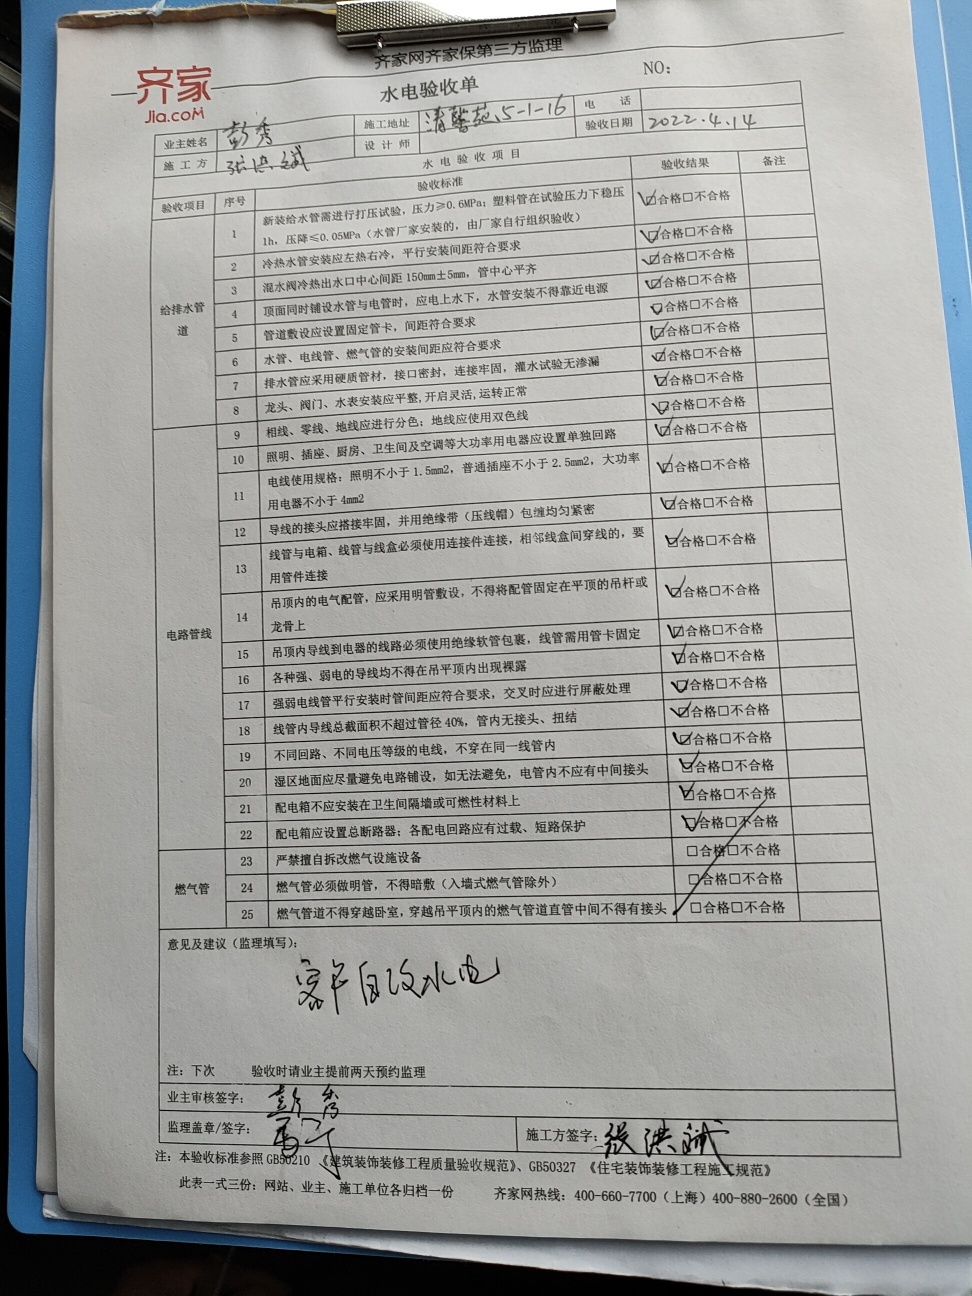 齐家网齐家保第三方监理
齐家
Jia.com
水电验收单
NO:
业主姓名 彭秀 施工地址 清馨苑5-1-16 电 话
施 工 方 张洪斌 设 计 师 验收日期 2022.4.14
水 电 验 收 项 目
验收项目 序号 验收标准 验收结果 备注
给排水管道
1 新装给水管需进行打压试验，压力≥0.6MPa；塑料管在试验压力下稳压
1h，压降≤0.05MPa（水管厂家安装的，由厂家自行组织验收） ☑合格□不合格
2 冷热水管安装应左热右冷，平行安装间距符合要求 ☑合格□不合格
3 混水阀冷热出水口中心间距 150mm±5mm，管中心平齐 ☑合格□不合格
4 顶面同时铺设水管与电管时，应电上水下，水管安装不得靠近电源 ☑合格□不合格
5 管道敷设应设置固定管卡，间距符合要求 ☑合格□不合格
6 水管、电线管、燃气管的安装间距应符合要求 ☑合格□不合格
7 排水管应采用硬质管材，接口密封，连接牢固，灌水试验无渗漏 ☑合格□不合格
8 龙头、阀门、水表安装应平整,开启灵活,运转正常 ☑合格□不合格
电路管线
9 相线、零线、地线应进行分色；地线应使用双色线 ☑合格□不合格
10 照明、插座、厨房、卫生间及空调等大功率用电器应设置单独回路 ☑合格□不合格
11 电线使用规格：照明不小于 1.5mm2，普通插座不小于 2.5mm2，大功率
用电器不小于 4mm2 ☑合格□不合格
12 导线的接头应搭接牢固，并用绝缘带（压线帽）包缠均匀紧密 ☑合格□不合格
13 线管与电箱、线管与线盒必须使用连接件连接，相邻线盒间穿线的，要
用管件连接 ☑合格□不合格
14 吊顶内的电气配管，应采用明管敷设，不得将配管固定在平顶的吊杆或
龙骨上 ☑合格□不合格
15 吊顶内导线到电器的线路必须使用绝缘软管包裹，线管需用管卡固定 ☑合格□不合格
16 各种强、弱电的导线均不得在吊平顶内出现裸露 ☑合格□不合格
17 强弱电线管平行安装时管间距应符合要求，交叉时应进行屏蔽处理 ☑合格□不合格
18 线管内导线总截面积不超过管径 40%，管内无接头、扭结 ☑合格□不合格
19 不同回路、不同电压等级的电线，不穿在同一线管内 ☑合格□不合格
20 湿区地面应尽量避免电路铺设，如无法避免，电管内不应有中间接头 ☑合格□不合格
21 配电箱不应安装在卫生间隔墙或可燃性材料上 ☑合格□不合格
22 配电箱应设置总断路器；各配电回路应有过载、短路保护 ☑合格□不合格
燃气管
23 严禁擅自拆改燃气设施设备 □合格□不合格
24 燃气管必须做明管，不得暗敷（入墙式燃气管除外） □合格□不合格
25 燃气管道不得穿越卧室，穿越吊平顶内的燃气管道直管中间不得有接头 □合格□不合格
意见及建议（监理填写）：
客户自改水电
注：下次 验收时请业主提前两天预约监理
业主审核签字： 彭秀
监理盖章/签字：
施工方签字： 张洪斌
注：本验收标准参照 GB50210 《建筑装饰装修工程质量验收规范》、GB50327 《住宅装饰装修工程施工规范》
此表一式三份：网站、业主、施工单位各归档一份 齐家网热线：400-660-7700（上海）400-880-2600（全国）